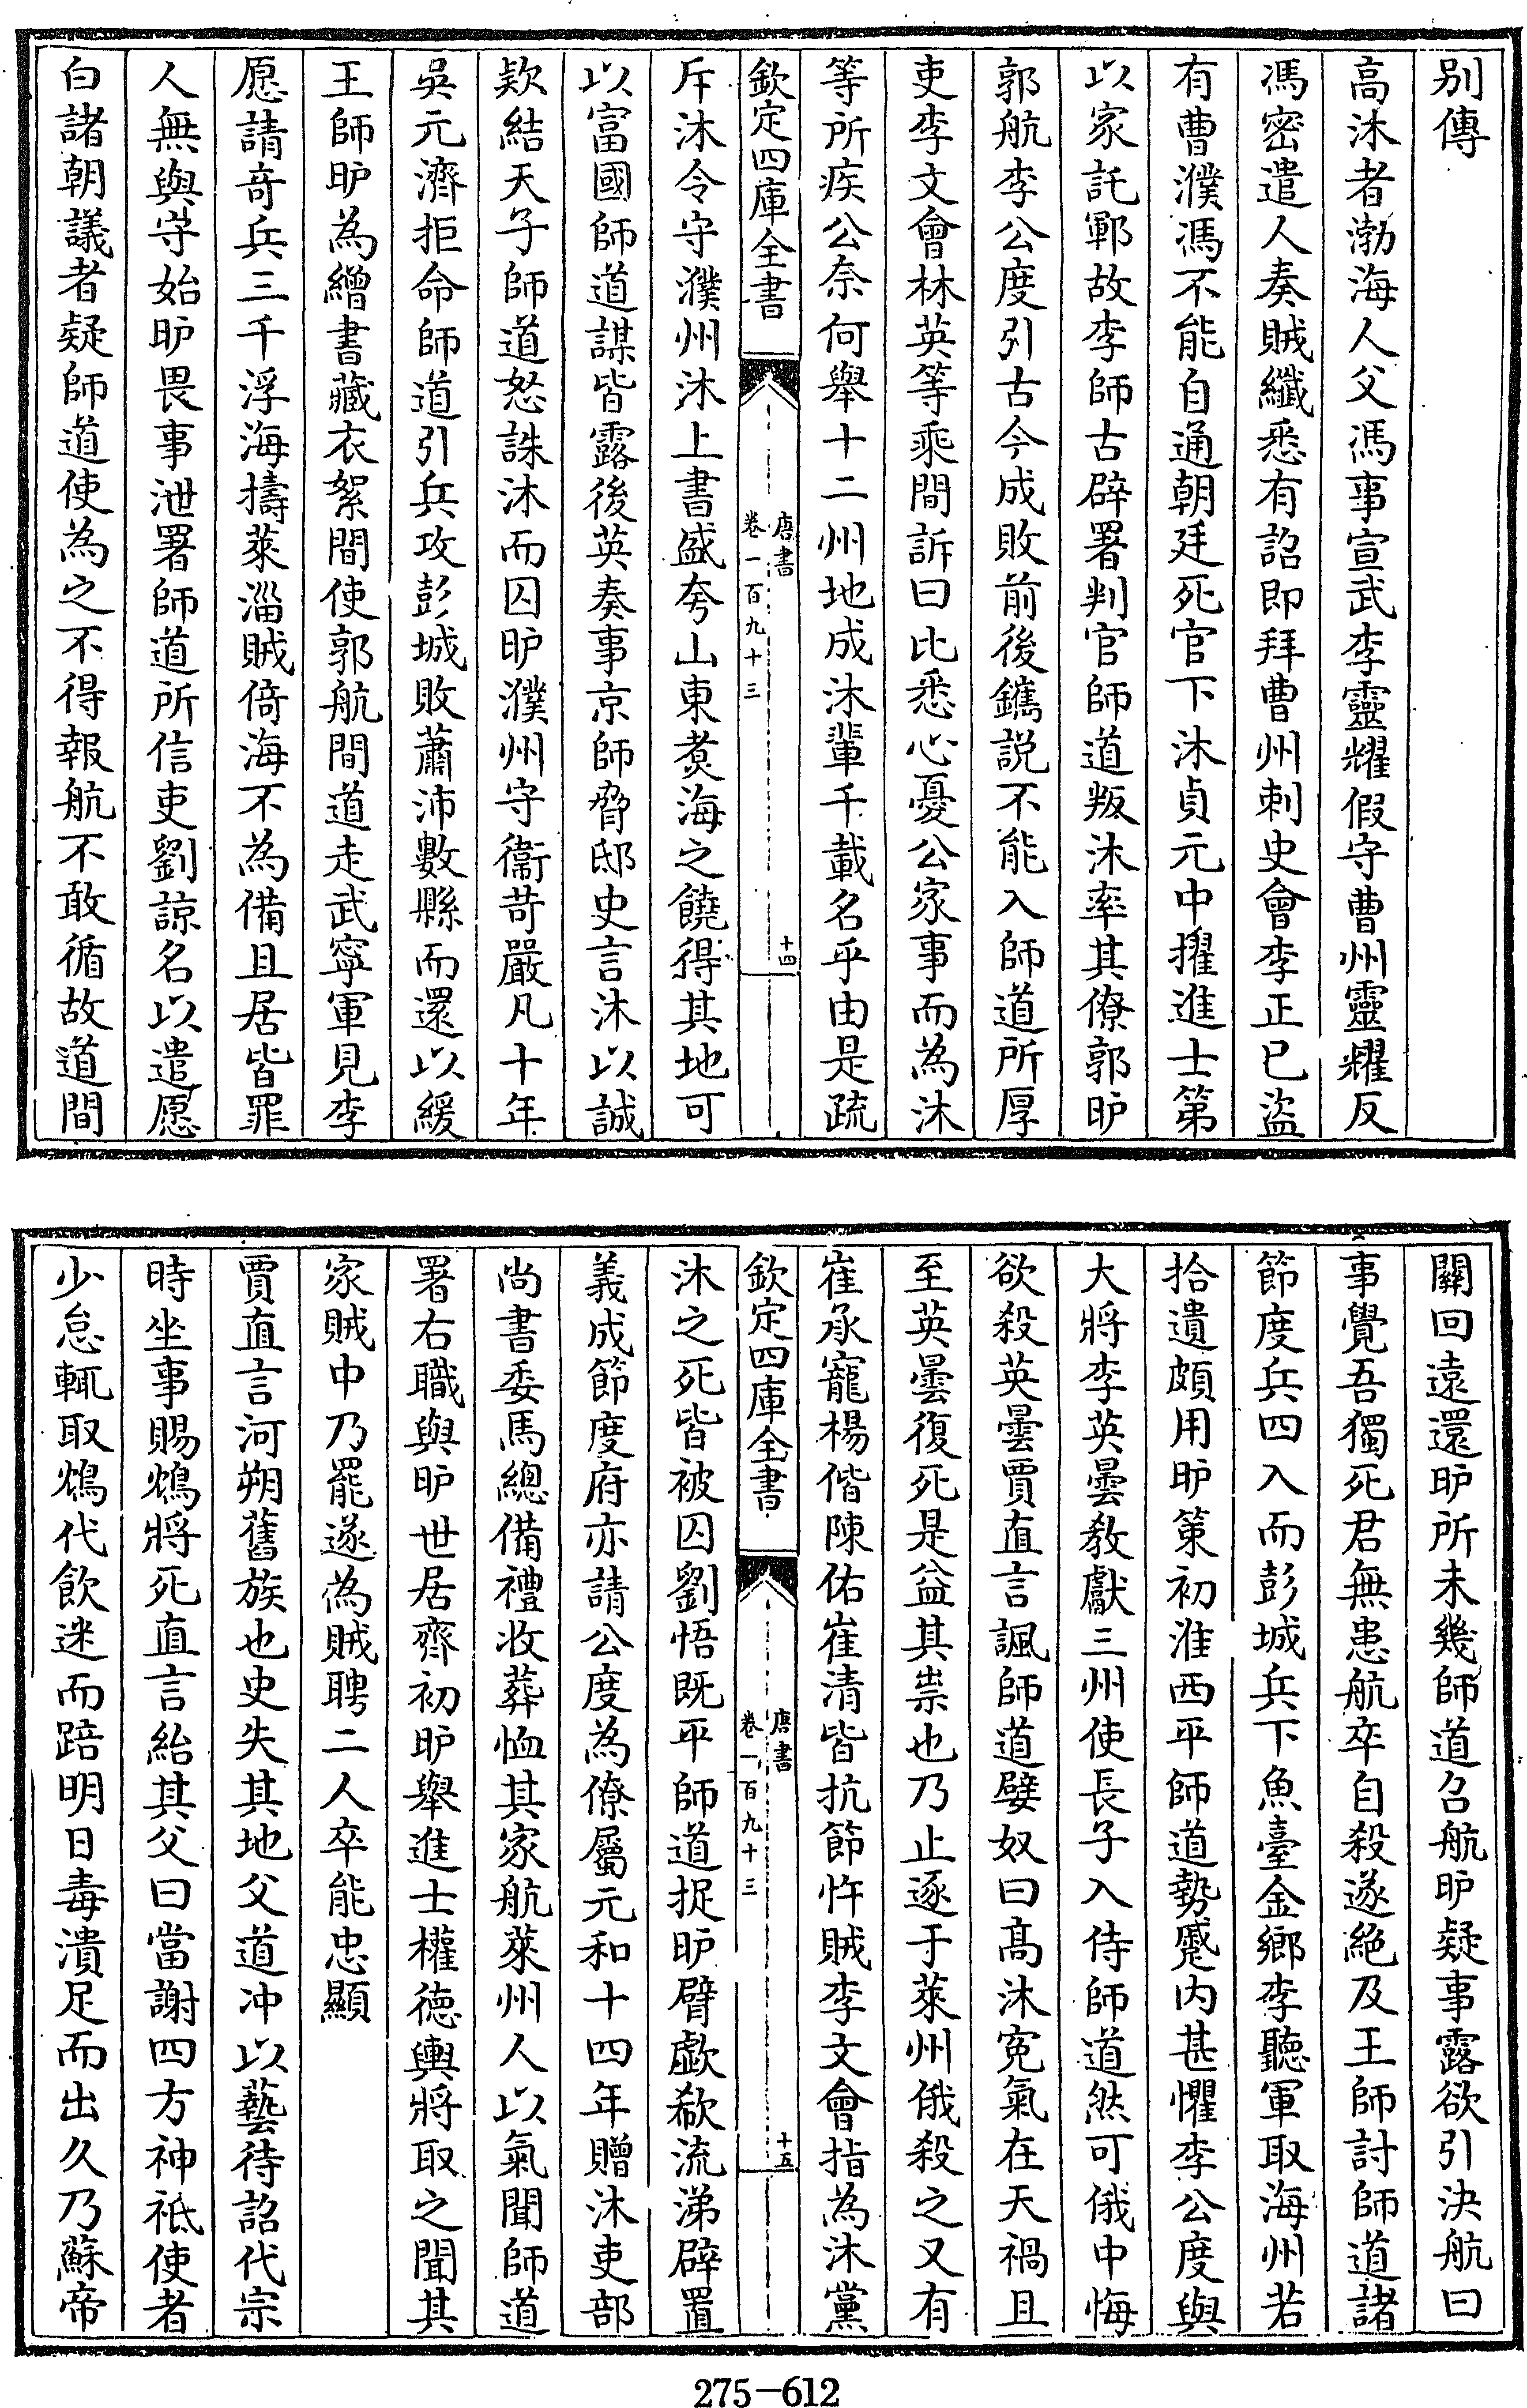 别傳
高沐者渤海人父馮事宣武李靈耀假守曹州靈耀反
馮密遣人奏賊纖悉有詔即拜曹州刺史會李正已盜
有曹濮馮不能自通朝廷死官下沐貞元中擢進士第
以家託鄆故李師古辟署判官師道叛沐率其僚郭昈
郭航李公度引古今成敗前後鐫説不能入師道所厚
吏李文會林英等乘間訴曰比悉心憂公家事而為沐
等所疾公奈何舉十二州地成沐輩千載名乎由是疏
欽定四庫全書
唐書
卷一百九十三
十四
斥沐令守濮州沐上書盛夸山東煑海之饒得其地可
以富國師道謀皆露後英奏事京師脅邸史言沐以誠
欵結天子師道怒誅沐而囚昈濮州守衞苛嚴凡十年
吳元濟拒命師道引兵攻彭城敗蕭沛數縣而還以緩
王師昈為繒書藏衣絮間使郭航間道走武寧軍見李
愿請奇兵三千浮海擣萊淄賊倚海不為備且居皆罪
人無與守始昈畏事泄署師道所信吏劉諒名以遣愿
白諸朝議者疑師道使為之不得報航不敢循故道間
關回遠還昈所未幾師道召航昈疑事露欲引決航曰
事覺吾獨死君無患航卒自殺遂絶及王師討師道諸
節度兵四入而彭城兵下魚臺金鄉李聽軍取海州若
拾遺頗用昈策初淮西平師道勢蹙内甚懼李公度與
大將李英曇教獻三州使長子入侍師道然可俄中悔
欲殺英曇賈直言諷師道嬖奴曰髙沐寃氣在天禍且
至英曇復死是益其祟也乃止逐于萊州俄殺之又有
崔承寵楊偕陳佑崔清皆抗節忤賊李文會指為沐黨
欽定四庫全書
唐書
卷一百九十三
十五
沐之死皆被囚劉悟既平師道捉昈臂歔欷流涕辟置
義成節度府亦請公度為僚屬元和十四年贈沐吏部
尚書委馬總備禮收葬恤其家航萊州人以氣聞師道
署右職與昈世居齊初昈舉進士權德輿將取之聞其
家賊中乃罷遂為賊聘二人卒能忠顯
賈直言河朔舊族也史失其地父道冲以藝待詔代宗
時坐事賜鴆將死直言紿其父曰當謝四方神祗使者
少怠輒取鴆代飲迷而踣明日毒潰足而出久乃蘇帝
275-612